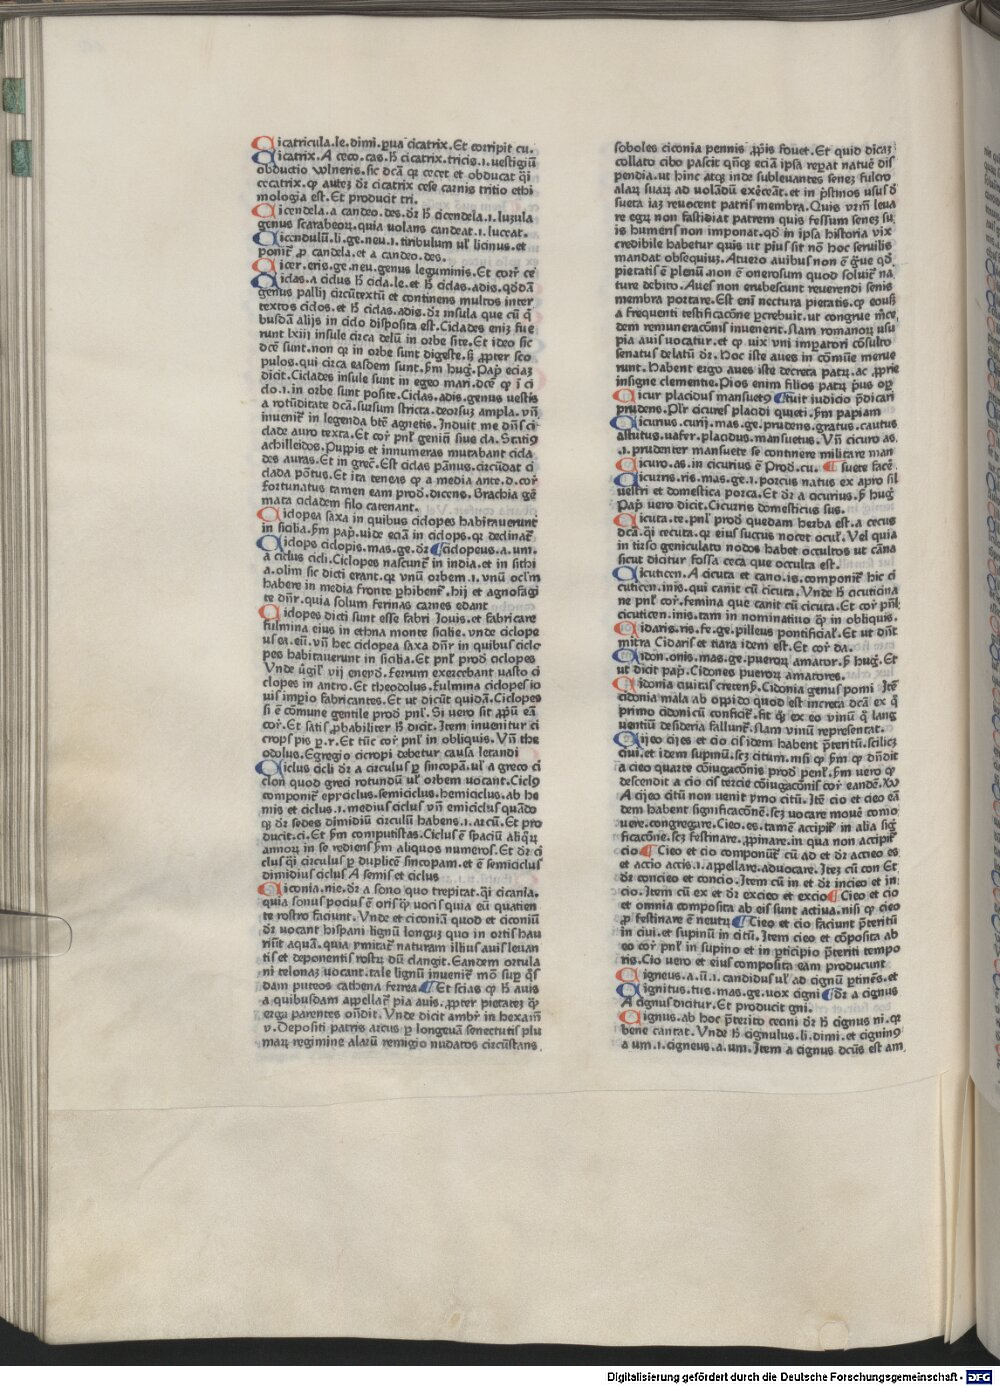 Cicatricula.le.dimi.ꝑua cicatrix.Et corripit cu.
Cicatrix.A ceco.cas.h̄ cicatrix.tricis.i.uestigiū
obductio uulneris.sic dcā qꝛ cecet et obducat q̄i
cecatrix.ꝙ autez dr̄ cicatrix cese carnis tritio ethi
mologia est.Et producit tri.
Cicendela.a candeo.des.dr̄ h̄ cicendela.i.luzula
genus scarabeoꝝ.quia uolans candeat.i.luceat.
Cicendulū.li.ge.neu.i.tiribulum ul̓ licinus.et
ponit̄ ꝓ candela.et a candeo.des.
Cicer.eris.ge.neu.genus leguminis.Et corr̄ ce
Ciclas.a ciclus h̄ cicla.le.et h̄ ciclas.adis.qd̓dā
genus pallij circūtextū et continens multos inter
textos ciclos.et h̄ ciclas.adis.dr̄ insula que cū q̄
busdā alijs in ciclo disposita est.Ciclades eniȝ fue
runt lxiij insule circa delū in orbe site.Et ideo sic
dcē sunt.non qꝛ in orbe sunt digeste.sȝ ꝓpter sco
pulos.qui circa easdem sunt.ẜm hug̓.Pap̄ eciaȝ
dicit.Ciclades insule sunt in egeo mari.dcē ꝙ ī ci
clo.i.in orbe sunt posite.Ciclas.adis.genus uestis
a rotūditate dcā.sursum stricta.deorsuȝ ampla.vn̄
inuenit̄ in legenda btē agnetis.Induit me dn̄s ci
clade auro texta.Et cor̄ pnl̓ geniti siue cla.Statiꝰ
achilleidos.Puppis et innumeras mutabant cicla
des auras.Et in grec̄.Est ciclas pānus.circūdat ci
clada pōtus.Et ita teneas ꝙ a media ante.d.cor̄
fortunatus tamen eam prod̓.dicens.Brachia gē
mata cicladem filo catenant.
Ciclopea saxa in quibus ciclopes habitauerunt
in sicilia.ẜm pap̄.uide eciā in ciclops.qꝛ declinat̄
Ciclops ciclopis.mas.ge.dr̄ ¶ciclopeus.a.um.
a ciclus cicli.Ciclopes nascunt̄ in india.et in sithi
a.olim sic dicti erant.qꝛ vnū orbem.i.vnū ocl̓m
habere in media fronte ꝑhibent̄.hij et agnofagi
te dn̄r.quia solum ferinas carnes edant
Ciclopes dicti sunt esse fabri Jouis.et fabricare
fulmina eius in ethna monte sicilie.vnde ciclope
us ea.eū.vn̄ hec ciclopea saxa dn̄r in quibus ciclo
pes habitauerunt in sicilia.Et pnl̓ prod̓ ciclopes
Vnde v̓gil̓ vij eneyd̓.Ferrum exercebant uasto ci
clopes in antro.Et theodolus.fulmina ciclopes io
uis impio fabricantes.Et ut dicūt quidā.Ciclopes
si ē cōmune gentile prod̓ pnl̓.Si uero sit ꝓpū eā
cor̄.Et satis ꝓbabiliter h̄ dicit.Item inuenitur ci
crops pis ꝑ.r.Et tūc cor̄ pnl̓ in obliquis.Vn̄ the
odolus.Egregio cicropi debetur causa letandi
Ciclus cicli dr̄ a circulus ꝑ sincopam.ul̓ a greco ci
clon quod greci rotundū ul̓ orbem uocant.Ciclꝰ
componit̄ epyciclus.semiciclus.hemiciclus.ab he
mis et ciclus.i.medius ciclus vn̄ emiciclus quādo
qꝫ dr̄ sedes dimidiū circulū habens.i.arcū.Et pro
ducit.ci.Et ẜm computistas.Ciclus ē spaciū aliqꝝ
annoꝝ in se rediens ẜm aliquos numeros.Et dr̄ ci
clus q̄i circulus ꝑ duplicē sincopam.et ē semiciclus
dimidius ciclus A semis et ciclus
Ciconia.nie.dr̄ a sono quo trepitat.q̄i cicania.
quia sonus pocius ē oris qꝫ uocis quia eū quatien
te rostro faciunt.Vnde et ciconiā quod et ciconiū
dr̄ uocant hispani lignū longuȝ quo in ortis hau
riūt aquā.quia ymitat̄ naturam illius auis leuan
tis et deponentis rostꝝ dū clangit.Eandem ortula
ni telonaȝ uocant.tale lignū inuenit̄ mō sup q̄s
dam puteos cathena ferrea ¶Et scias ꝙ h̄ auis
a quibusdam appellat̄ pia auis.ꝓpter pietateȝ qꝫ
erga parentes on̄dit.Vnde dicit ambr̄ in hexam̄
v.Depositi patris arcus ꝑ longeuā senectutis plu
maꝝ regimine alarū remigio nudatos circūstans
soboles ciconia pennis ꝓp̄is fouet.Et quid dicaȝ
collato cibo pascit qn̄qꝫ eciā ipsa reꝑat natuē dis
pendia.ut hinc atqꝫ inde subleuantes seneȝ fulcro
alaꝝ suaꝝ ad uolādū exerceāt.et in p̄stinos usus d̓
sueta iaȝ reuocent patris membra.Quis vr̄m leua
re egꝝ non fastidiat patrem quis fessum seneȝ su
is humeris non imponat.qd̓ in ipsa historia vix
credibile habetur quis ut pius sit nō hoc seruilis
mandat obsequiuȝ.Atuero auibus non ē ḡue qd̓
pietatis ē plenū.non ē onerosum quod soluit̄ na
ture debito.Aues non erubescunt reuerendi senis
membra portare.Est eni nectura pietatis.ꝙ eousqꝫ
a frequenti testificacōne ꝑcrebuit.ut congrue m̄ce
dem remuneracōnis inuenerit.Nam romanoꝝ usu
pia auis uocatur.et ꝙ uix vni imꝑatori cōsulto
senatus delatū dr̄.Hoc iste aues in cōmūe merue
runt.Habent ergo aues iste decreta patꝝ.ac ꝓprie
insigne clementie.Pios enim filios patꝝ p̄us opꝫ
Cicur placidus mansuetꝰ ¶fuit judicio p̄dicari
prudens.Plr̄ cicures placidi quieti.ẜm papiam
Cicurius.curij.mas.ge.prudens.gratus.cautus
astutus.uafer.placidus.mansuetus.Vn̄ cicuro as.
.i.prudenter mansuete se continere militare man
Cicuro.as.in cicurius ē Prod̓.cu. ¶suete facē.
Cicurris.ris.mas.ge.i.porcus natus ex apro sil
uestri et domestica porca.Et dr̄ a cicurius.ẜ hug̓
Pap̄ uero dicit.Cicurris domesticus sus.
Cicuta.te.pnl̓ prod̓ quedam herba est.a cecus
dcā.q̄i cecuta.qꝛ eius succus nocet ocul̓.Vel quia
in tirso geniculato nodos habet occultos ut cāna
sicut dicitur fossa ceca que occulta est.
Cicuticen.A cicuta et cano.is.componit̄ hic ci
cuticen.inis.qui canit cū cicuta.Vnde h̄ cicuticina
ne pnl̓ cor̄.femina que canit cū cicuta.Et cor̄ pnl̓
cicuticen.inis.tam in nominatiuo qꝫ in obliquis.
Cidaris.ris.fe.ge.pilleus pontificial̓.Et ut dn̄t
mitra Cidaris et tiara idem est.Et cor̄ da.
Cidon.onis.mas.ge.pueroꝝ amator.ẜ hug̓.Et
ut dicit pap̄.Cidones pueroꝝ amatores.
Cidonia ciuitas cretenẜ.Cidonia genus pomi Jtē
cidonia mala ab oppido quod est in creta dcā ex q̄
primo cidoniū conficit̄.fit qꝫ ex eo vinū ꝙ lang
uentiū desideria fallunt̄.Nam vinum representat.
Cijeo cijes et cio cis idem habent p̄teritū.sciliceȝ
ciui.et idem supinū.scȝ citum.nisi ꝙ ẜm ꝙ dn̄dit
a cieo quarte cōiugacōnis prod̓ penl̓.ẜm uero ꝙ
descendit a cio cis tercie cōiugacōnis cor̄ eandē.xv
A cijeo citū non uenit ymo citū.Jtē cio et cieo eā
dem habent significacōnē.scȝ uocare mouē como
uere.congregare.Cieo.es.tamē accipit̄ in alia sig̓
ficacōne.scȝ festinare.ꝓpinare.in qua non accipit̄
cio ¶Cieo et cio componūt̄ cū ad et dr̄ accieo es
et accio accis.i.appellare.aduocare.Jteȝ cū con Et
dr̄ concieo et concio.Jtem cū in et dr̄ incieo et in
cio.Jtem cū ex et dr̄ excieo et excio ¶Cieo et cio
et omnia composita ab eis sunt actiua.nisi ꝙ cieo
ꝓ festinare ē neutꝝ ¶Cieo et cio faciunt p̄teritū
in ciui.et supinū in citū.Jtem cieo et cōposita ab
eo cor̄ pnl̓ in supino et in ꝑticipio p̄teriti tempo
ris.Cio uero et eius composita eam producunt
Cigneus.a.ū.i.candidus ul̓ ad cignū ꝑtinēs.et
Cignitus.tus.mas.ge.uox cigni ¶dr̄ a cignus
A cignus dicitur.Et producit gni.
Cignus.ab hoc p̄terito cecini dr̄ h̄ cignus ni.qꝛ
bene cantat.Vnde h̄ cignulus.li.dimi.et cigninꝰ
a um.i.cigneus.a.um.Jtem a cignus dcūs est am
Digitalisierung gefördert durch die Deutsche Forschungsgemeinschaft - DFG